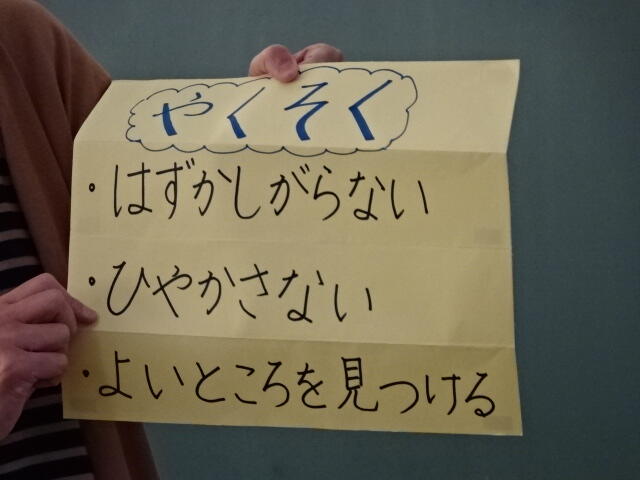 やくそく
・はずかしがらない
・ひやかさない
・よいところを見つける